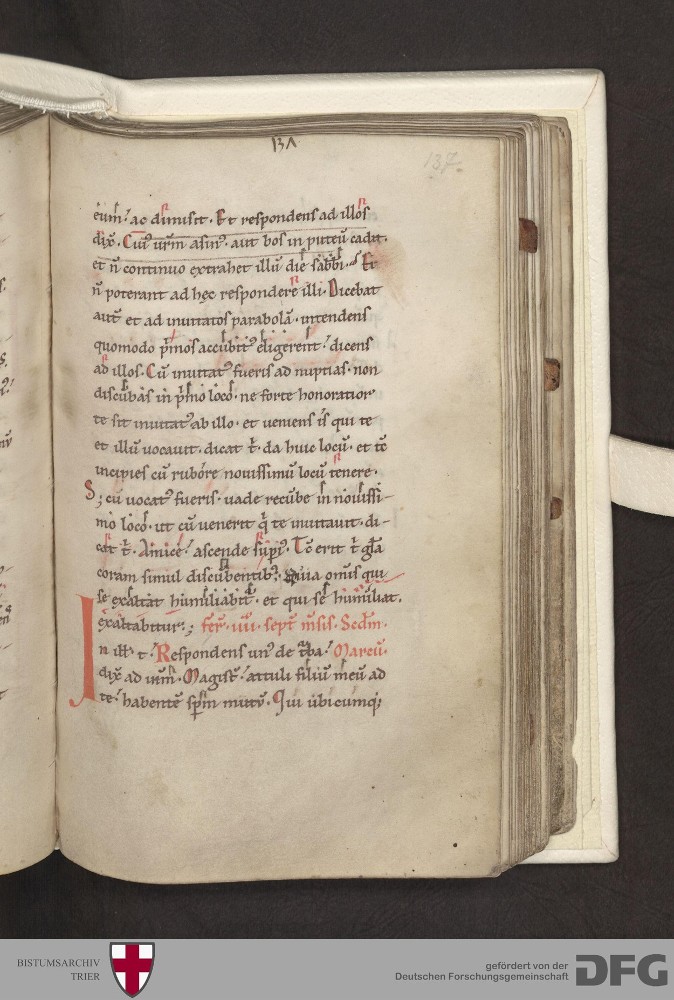 137
137.
eum. ac dimisit. Et respondens ad illos
dix̄. Cui' ur̄m asin'. aut bos in puteū cadit.
et n̄ continuo extrahet illū die sabb̄i. Et
n̄ poterant ad hęc respondere illi. Dicebat
aut̄ et ad inuitatos parabolā. intendens
quomodo p̄mos accubit' eligerent. dicens
ad illos. Cū inuitat' fueris ad nuptias. non
discūbas in p̄mo loco. ne forte honoratior
te sit inuitat' ab illo. et ueniens is qui te
et illū uocauit. dicat t̄. da huic locū. et tc̄
incipies cū rubore nouissimū locū tenere.
S; cū uocat' fueris. uade recūbe in nouissi-
mo loco. ut cū uenerit q̄ te inuitauit. di-
cat t̄. Amice. ascende sup̄i'. Tc̄ erit t̄ gl̄a
coram simul discūbentib'. Quia omis qui
se exaltat humiliabit'. et qui se humiliat.
exaltabitur; fer̄. iiii. sept̄ m̄sis. Scd̄m.
In ill̄. t. Respondens un' de t̄ba. Marcū.
dix̄ ad ih̄m. Magist̄. attuli filiū meū ad
te. habentē sp̄m mutū. Qui ubicumq;
BISTUMSARCHIV
TRIER
gefördert von der
Deutschen Forschungsgemeinschaft
DFG